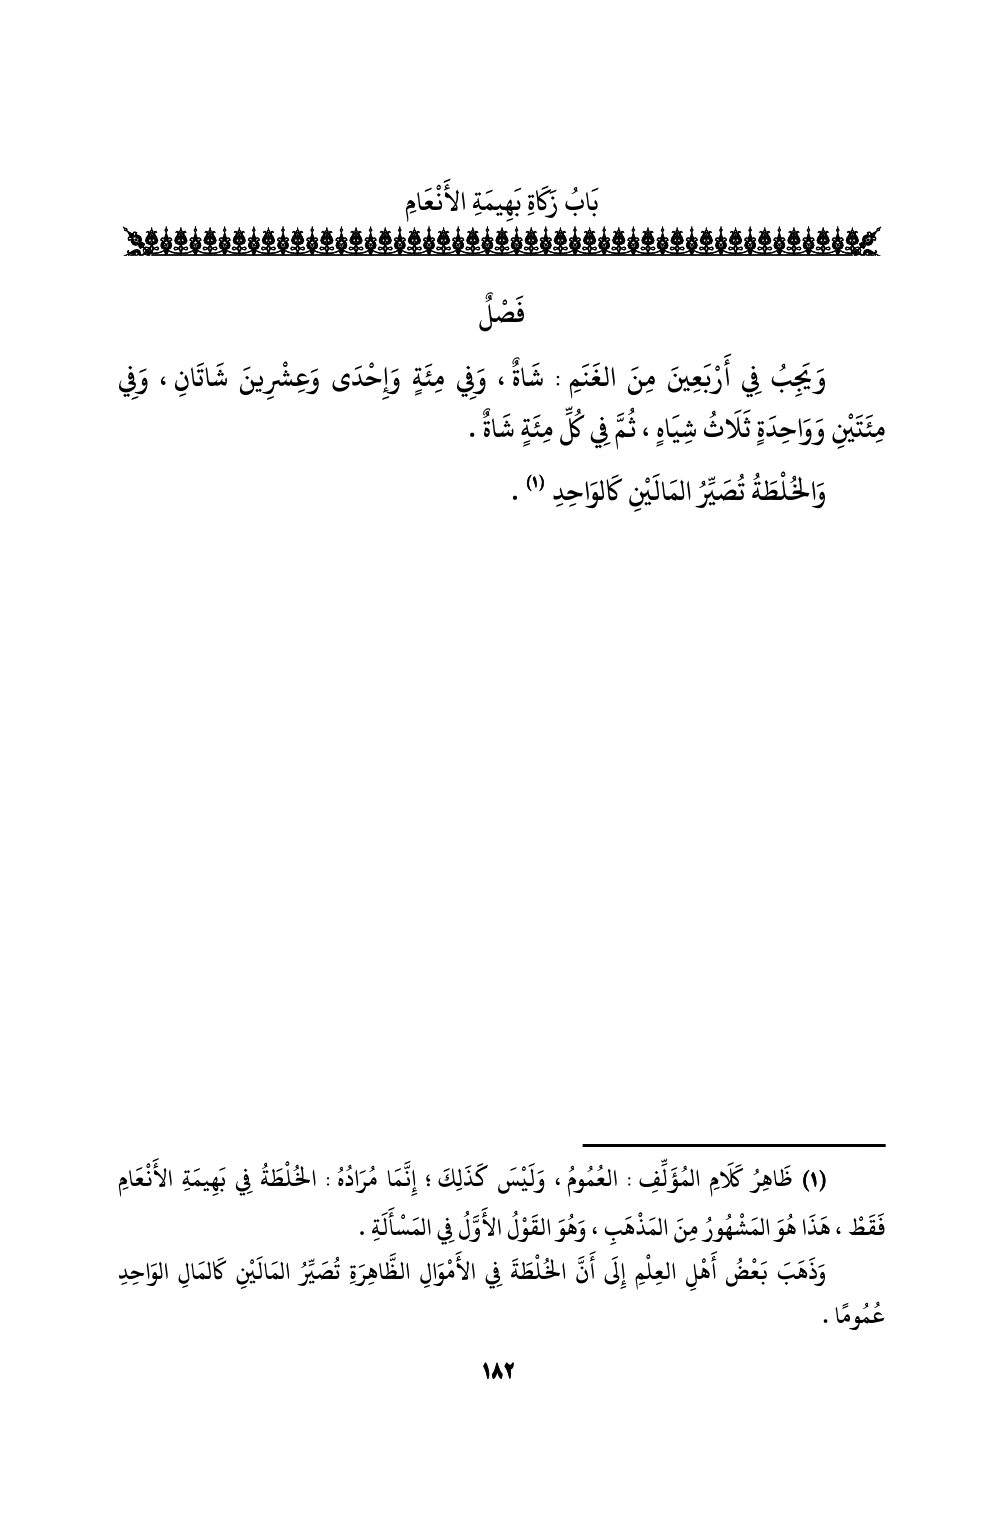 بَابُ زَكَاةِ بَهِيمَةِ الأَنْعَامِ
فَصْلٌ
وَيَجِبُ فِي أَرْبَعِينَ مِنَ الغَنَمِ : شَاةٌ ، وَفِي مِئَةٍ وَإِحْدَى وَعِشْرِينَ شَاتَانِ ، وَفِي
مِئَتَيْنِ وَوَاحِدَةٍ ثَلَاثُ شِيَاهٍ ، ثُمَّ فِي كُلِّ مِئَةٍ شَاةٌ .
وَالخُلْطَةُ تُصَيِّرُ المَالَيْنِ كَالوَاحِدِ (١) .
(١) ظَاهِرُ كَلَامِ المُؤَلِّفِ : العُمُومُ ، وَلَيْسَ كَذَلِكَ ؛ إِنَّمَا مُرَادُهُ : الخُلْطَةُ فِي بَهِيمَةِ الأَنْعَامِ
فَقَطْ ، هَذَا هُوَ المَشْهُورُ مِنَ المَذْهَبِ ، وَهُوَ القَوْلُ الأَوَّلُ فِي المَسْأَلَةِ .
وَذَهَبَ بَعْضُ أَهْلِ العِلْمِ إِلَى أَنَّ الخُلْطَةَ فِي الأَمْوَالِ الظَّاهِرَةِ تُصَيِّرُ المَالَيْنِ كَالمَالِ الوَاحِدِ
عُمُومًا .
١٨٢